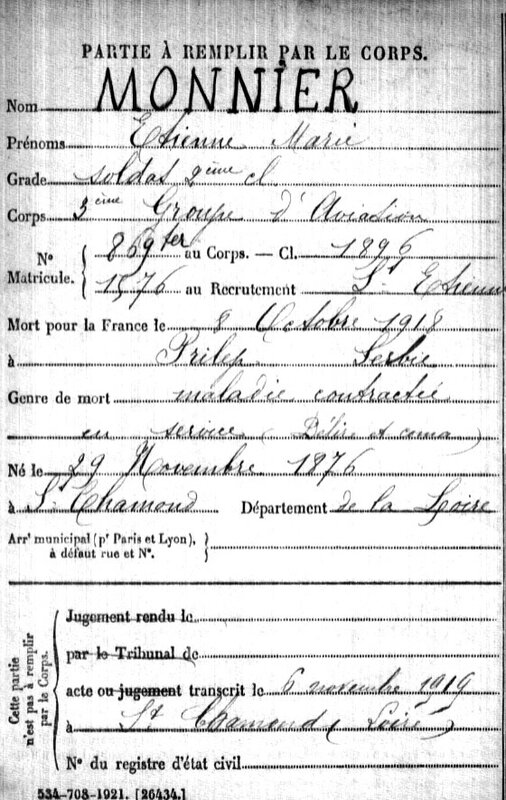 PARTIE À REMPLIR PAR LE CORPS.
Nom MONNIER
Prénoms Etienne Marie
Grade soldat 2ème cl
Corps 3ème Groupe d'Aviation
Nº Matricule. { 869ter au Corps. — Cl. 1896
1576 au Recrutement St Etienne
Mort pour la France le 8 Octobre 1918
à Prilep Serbie
Genre de mort maladie contractée
en service (Délire et coma)
Né le 29 Novembre 1876
à St Chamond Département de la Loire
Arrt municipal (pr Paris et Lyon),
à défaut rue et Nº. }
Cette partie n'est pas à remplir par le Corps.
Jugement rendu le
par le Tribunal de
acte ou jugement transcrit le 6 novembre 1919
à St Chamond (Loire)
Nº du registre d'état civil
534-708-1921. [26434.]